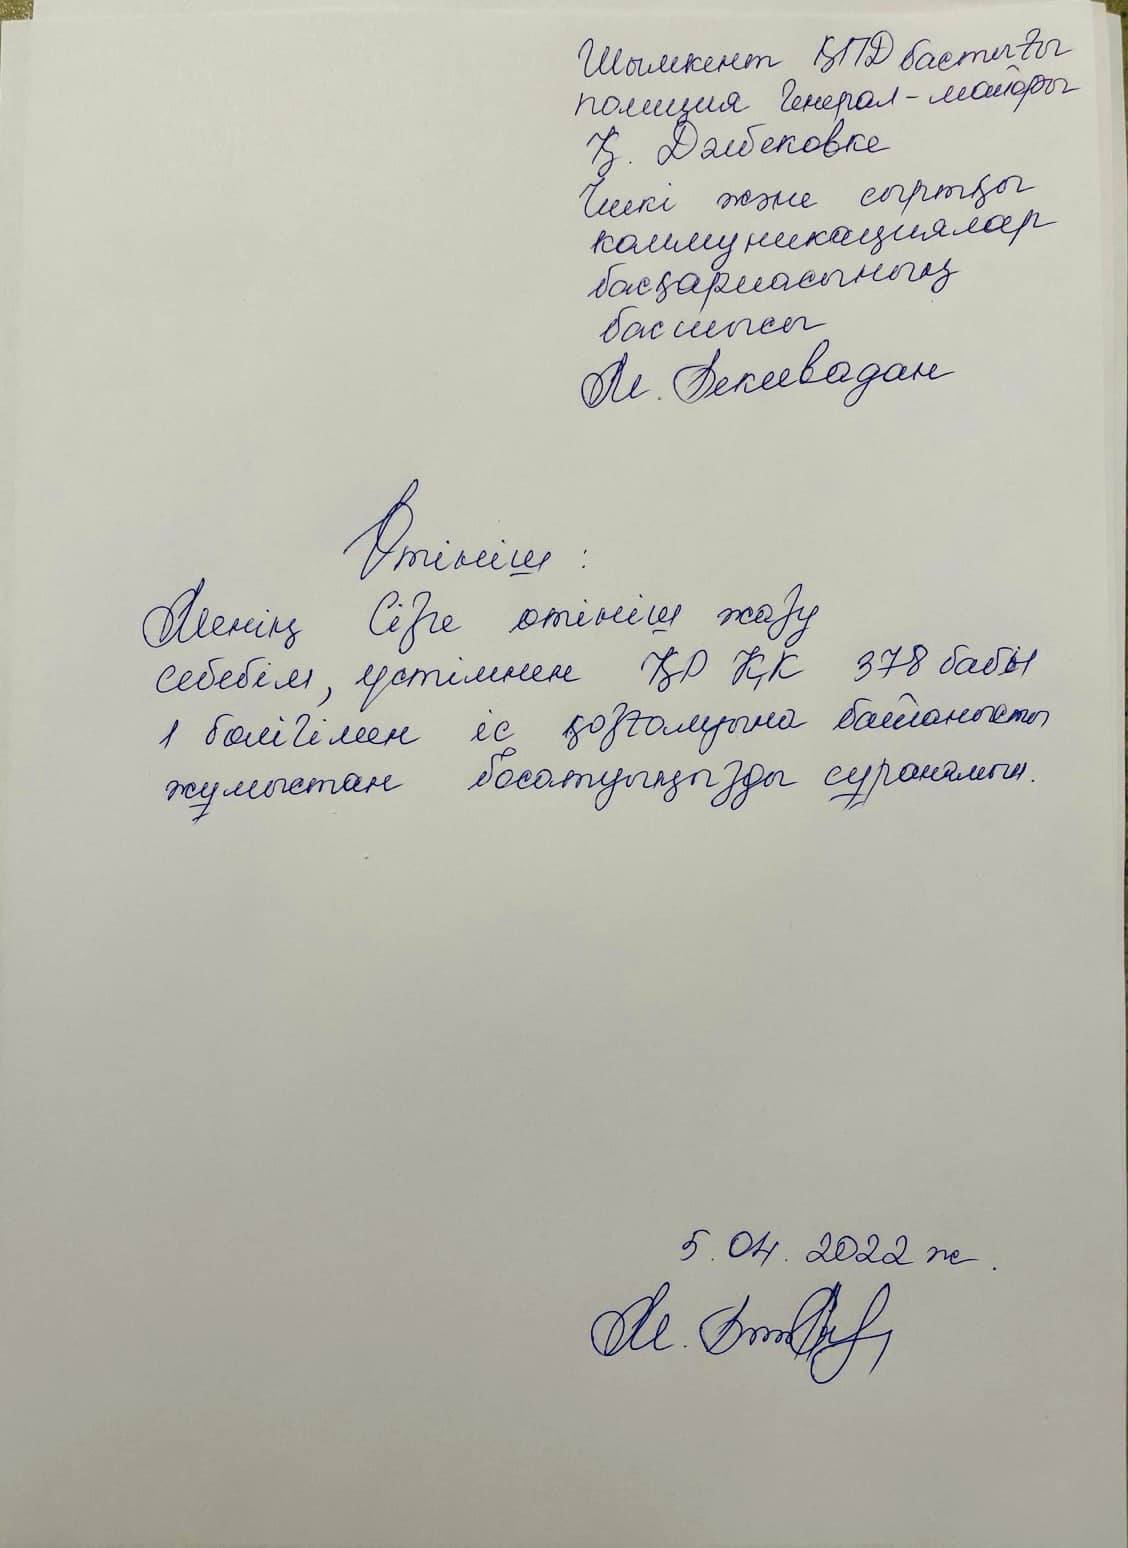 Шымкент ҚПД бастығы
полиция генерал-майоры
Қ. Дәлбековке
Ішкі және сыртқы
коммуникациялар
басқармасының
басшысы
М. Бекеевадан
Өтініш:
Менің Сізге өтініш жазу
себебім, үстімнен ҚР ҚК 378 бабы
1 бөлігімен іс қозғалуына байланысты
жұмыстан босатуыңызды сұранамын.
5.04.2022 ж.
М.